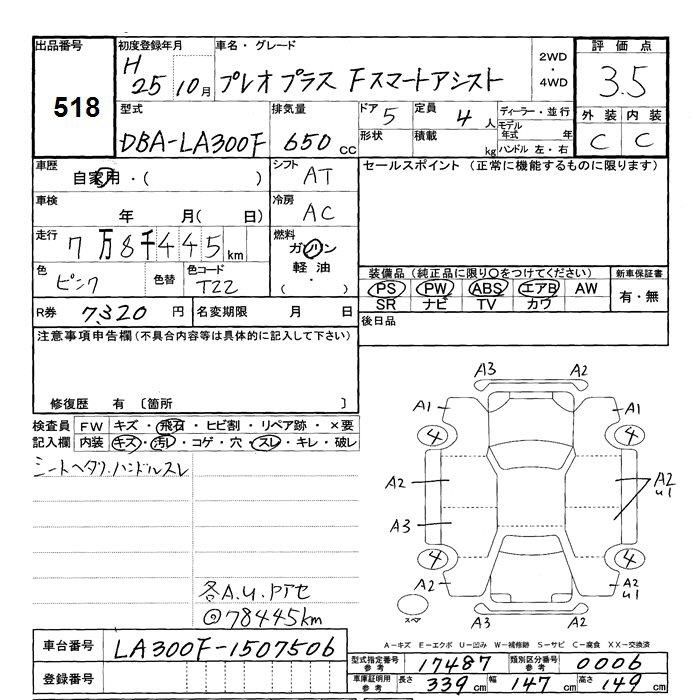 出品番号
518
初度登録年月
H
25 10月
車名・グレード
プレオプラス Fスマートアシスト
2WD
・
4WD
評価点
3.5
型式
DBA-LA300F
排気量
650 cc
ドア 5
形状
定員 4 人
積載 kg
ディーラー・並行
モデル年式 年
ハンドル 左・右
外装 内装
C C
車歴
自家用・( )
シフト
AT
セールスポイント (正常に機能するものに限ります)
車検
年 月( 日)
冷房
AC
走行
7万8千445km
燃料
ガソリン
軽油
( ・ )
色
ピンク
色替
色コード
T22
装備品(純正品に限り○をつけてください)
PS PW ABS エアB AW
SR ナビ TV カワ
新車保証書
有・無
R券 7,320 円
名変期限 月 日
後日品
注意事項申告欄(不具合内容等は具体的に記入して下さい)
修復歴 有 〔箇所 〕
検査員
記入欄
FW キズ・飛石・ヒビ割・リペア跡・×要
内装 キズ・汚レ・コゲ・穴・スレ・キレ・破レ
シートヘタリ.ハンドルスレ
各A.U.PTセ
◎78445km
A3 A2
A1 A1
4 4
A2 A2
U1
A3
4 4
A2 A2
U1
A3 A2
スペア
A-キズ E-エクボ U-凹み W-補修跡 S-サビ C-腐食 XX-交換済
車台番号 LA300F-1507506
登録番号
型式指定番号
参考
17487
類別区分番号
参考
0006
車庫証明用
参考
長さ 339 cm 幅 147 cm 高さ 149 cm